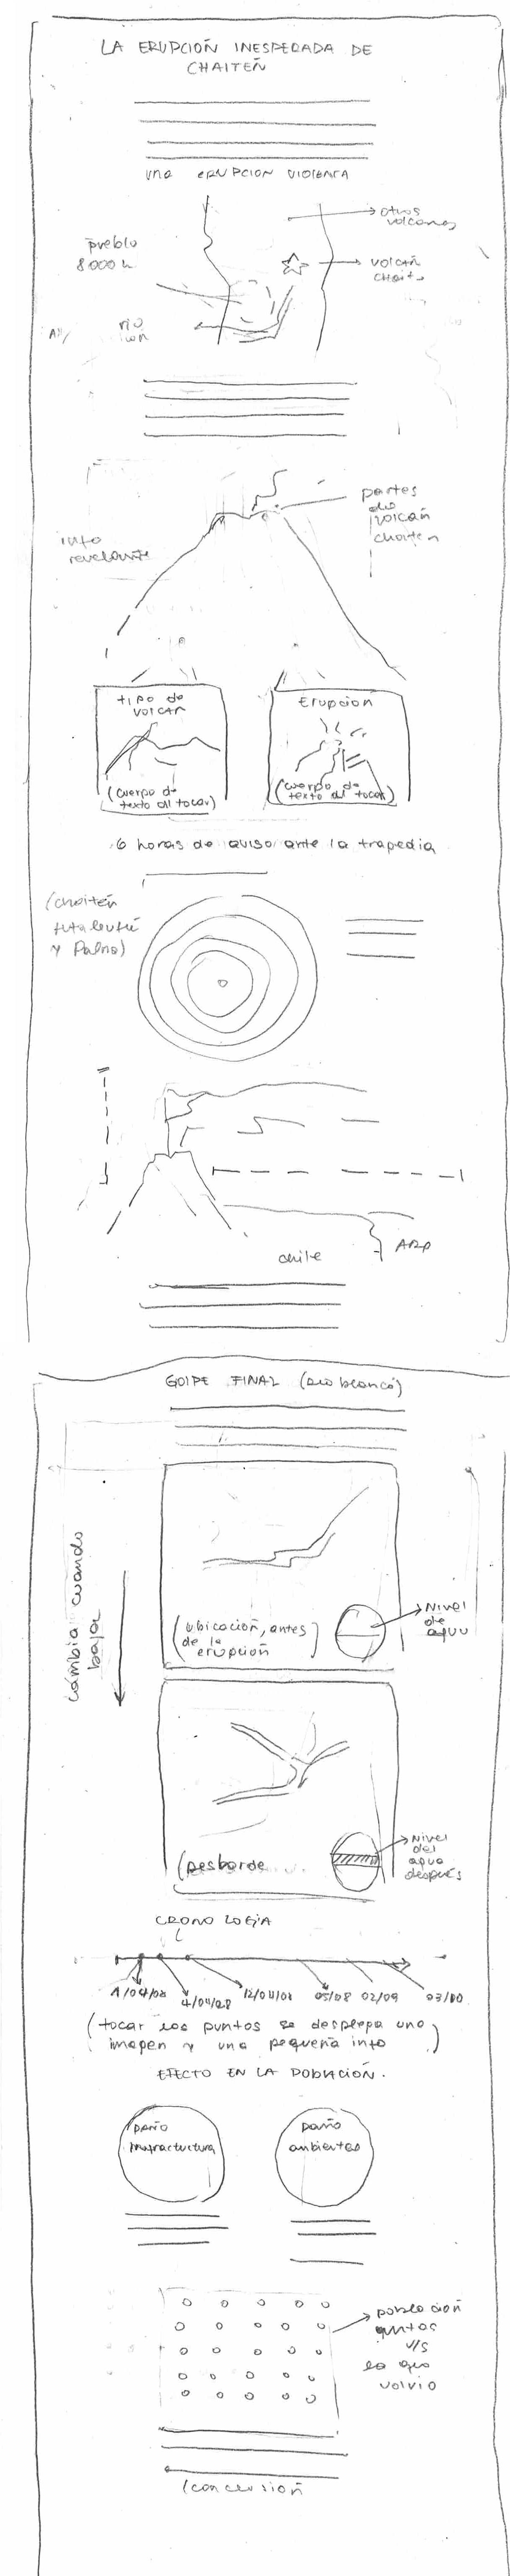 LA ERUPCIÓN INESPERADA DE
CHAITÉN
una ERUPCION VIOLENTA
otros
volcanes
pueblo
8000 h
volcán
chait
río
partes
de
volcán
chaiten
info
revelante
tipo de
volcán
(cuerpo de
texto al tocar)
Erupcion
(cuerpo de
texto al tocar)
6 horas de aviso ante la tragedia
(chaitén
futaleufú
y Palna)
chile
ARG
GOLPE FINAL (río blanco)
cambia cuando
baja
(ubicación, antes
de la
erupción
Nivel
de
agua
(Desborde
Nivel
del
agua
después
CRONOLOGÍA
02/09
(tocar los puntos se desplega una
imagen y una pequeña info)
EFECTO EN LA POBLACIÓN.
Daño
infractuctura
Daño
ambiental
población
antes
v/s
la que
volvio
(conclusión